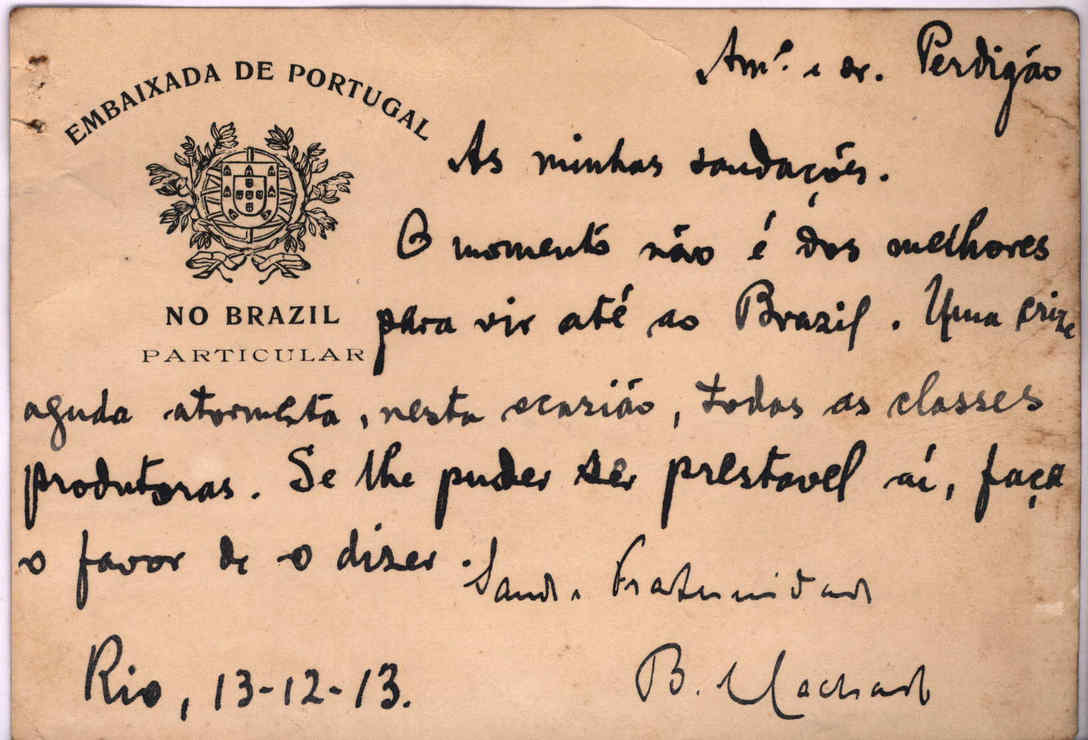 EMBAIXADA DE PORTUGAL
NO BRAZIL
PARTICULAR
Amº. e sr. Perdigão
As minhas saudações.
O momento não é dos melhores
para vir até ao Brazil. Uma crize
aguda atormenta, nesta ocazião, todas as classes
produtoras. Se lhe puder ser prestavel aí, faça
o favor de o dizer.
Saude e Fraternidade
Rio, 13-12-13.
B. Machado